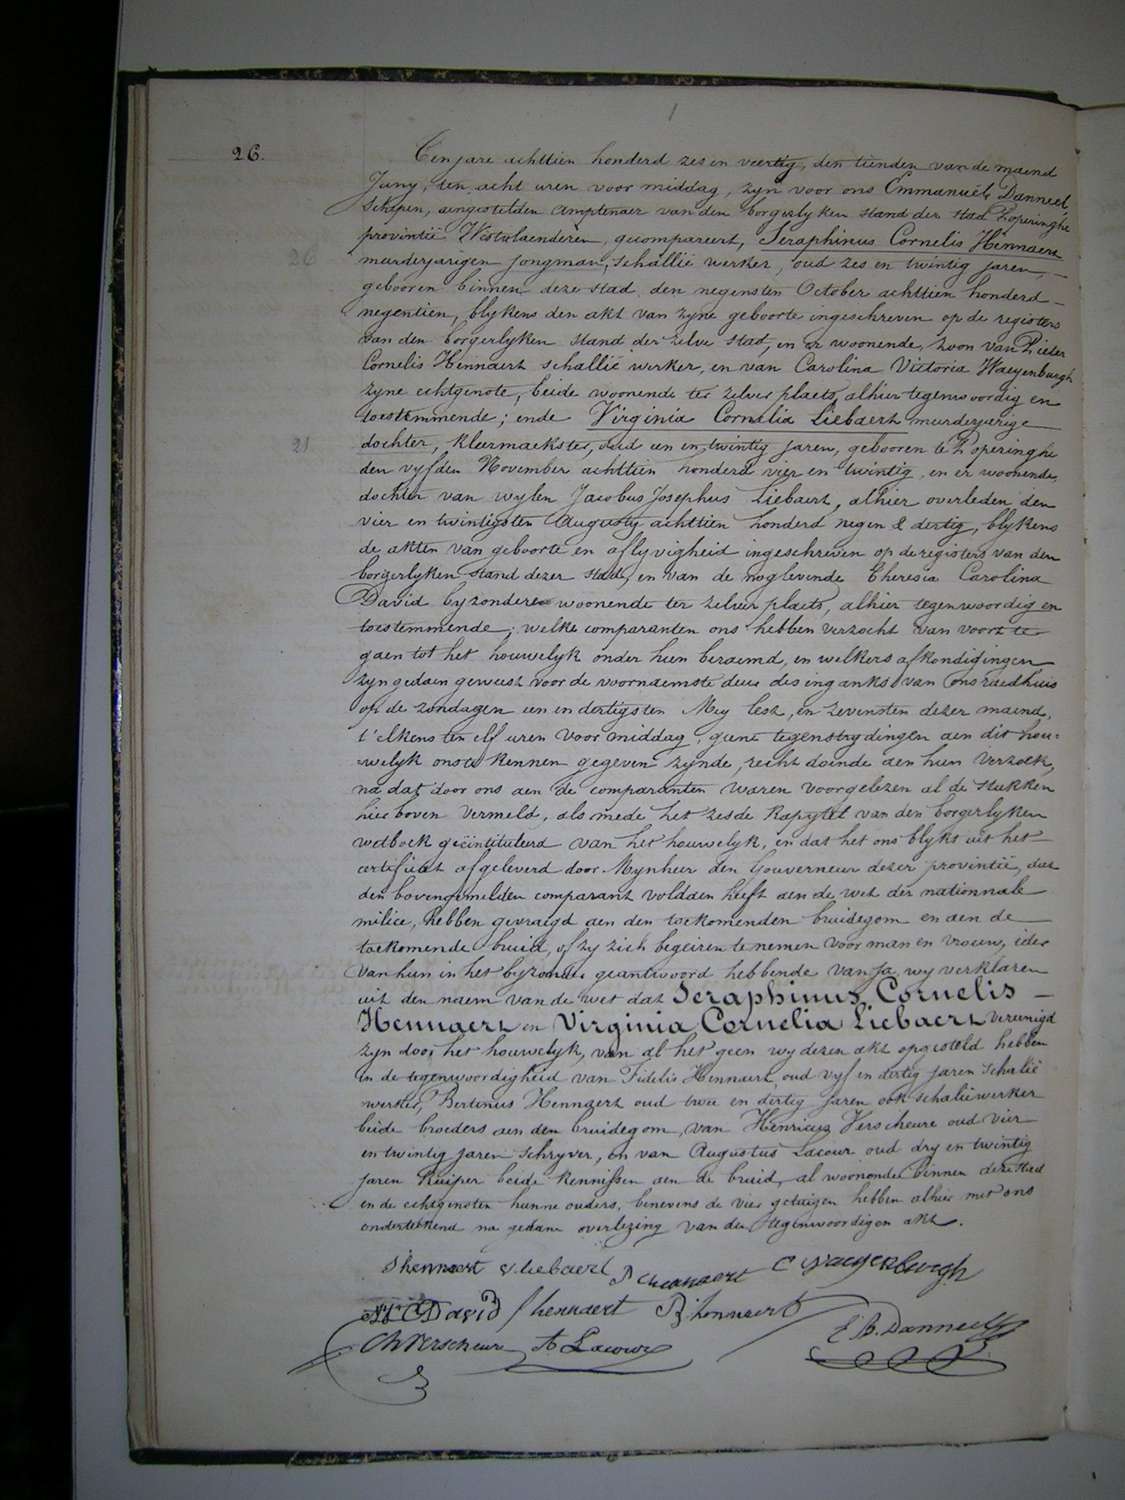 26.
Ten jare achttien honderd zes en veertig, den tienden van de maend
Juny, ten acht uren voor middag, zyn voor ons Emmanuel Danneel,
Schepen, aengestelden amptenaer van den borgerlyken stand der stad Poperinghe
provintië Westvlaenderen, gecompareert, Seraphinus Cornelis Hennaert
meerderjarigen jongman, schallië werker, oud zes en twintig jaren,
gebooren binnen deze stad den negensten October achttien honderd
negentien, blykens den akt van zyne geboorte ingeschreven op de registers
van den borgerlyken stand der zelve stad, en er woonende, zoon van Pieter
Cornelis Hennaert schallië werker, en van Carolina Victoria Waeyenburgh
zyne echtgenote, beide woonende ter zelver plaets, alhier tegenwoordig en
toestemmende; ende Virginia Cornelia Liebaert meerderjarige
21
dochter, kleermaekster, oud een en twintig jaren, gebooren te Poperinghe
den vyfden November achttien honderd vier en twintig, en er woonende,
dochter van wylen Jacobus Josephus Liebaert, alhier overleden den
vier en twintigsten Augusty achttien honderd negen & dertig, blykens
de akten van geboorte en aflyvigheid ingeschreven op de registers van den
borgerlyken stand dezer stad, en van de noglevende Theresia Carolina
David byzondere woonende ter zelver plaets, alhier tegenwoordig en
toestemmende; welke comparanten ons hebben verzocht van voort te
gaen tot het houwelyk onder hun beraemd, en welkers afkondigingen
zyn gedaen geweest voor de voornaemste deur des ingangs van ons raedhuis
op de zondagen een en dertigsten Mey lest, en zevensten dezer maend,
t'elkens ten elf uren voor middag, geene tegenstrydingen aen dit hou=
=welyk ons te kennen gegeven zynde, recht doende aen hun verzoek,
na dat door ons aen de comparanten waren voorgelezen al de stukken
hier boven vermeld, als mede het zesde kapyttel van den borgerlyken
wetboek geïntituleerd van het houwelyk, en dat het ons blykt uit het
certificaet afgeleverd door Mynheer den Gouverneur dezer provintië, dat
den bovengemelden comparant voldaen heeft aen de wet der nationnale
milice, hebben gevraegd aen den toekomenden bruidegom en aen de
toekomende bruid, of zy zich begeiren te nemen voor man en vrouw, ider
van hun in het byzonder geantwoord hebbende van Ja, wy verklaren
uit den naem van de wet dat Seraphinus Cornelis
Hennaert en Virginia Cornelia Liebaert vereenigd
zyn door het houwelyk, van al het geen wy dezen akt opgesteld hebben
in de tegenwoordigheid van Fidelis Hennaert, oud vyf en dertig jaren schalie
werker, Bertinus Hennaert oud twee en dertig jaren ook schaliewerker
beide broeders aen den bruidegom, van Henricus Verscheure oud vier
en twintig jaren schryver, en van Augustus Lacour oud dry en twintig
jaren kuiper beide kennissen aen de bruid, al woonende binnen deze stad
en de echtgenoten hunne ouders, benevens de vier getuigen hebben alhier met ons
onderteekend na gedane overlezing van den tegenwoordigen akt.
S hennaert v. liebaert P C hennaert C Waeyenburgh
T C David f hennaert B. hennaert
Ch Verscheure A Lacour E B. Danneel